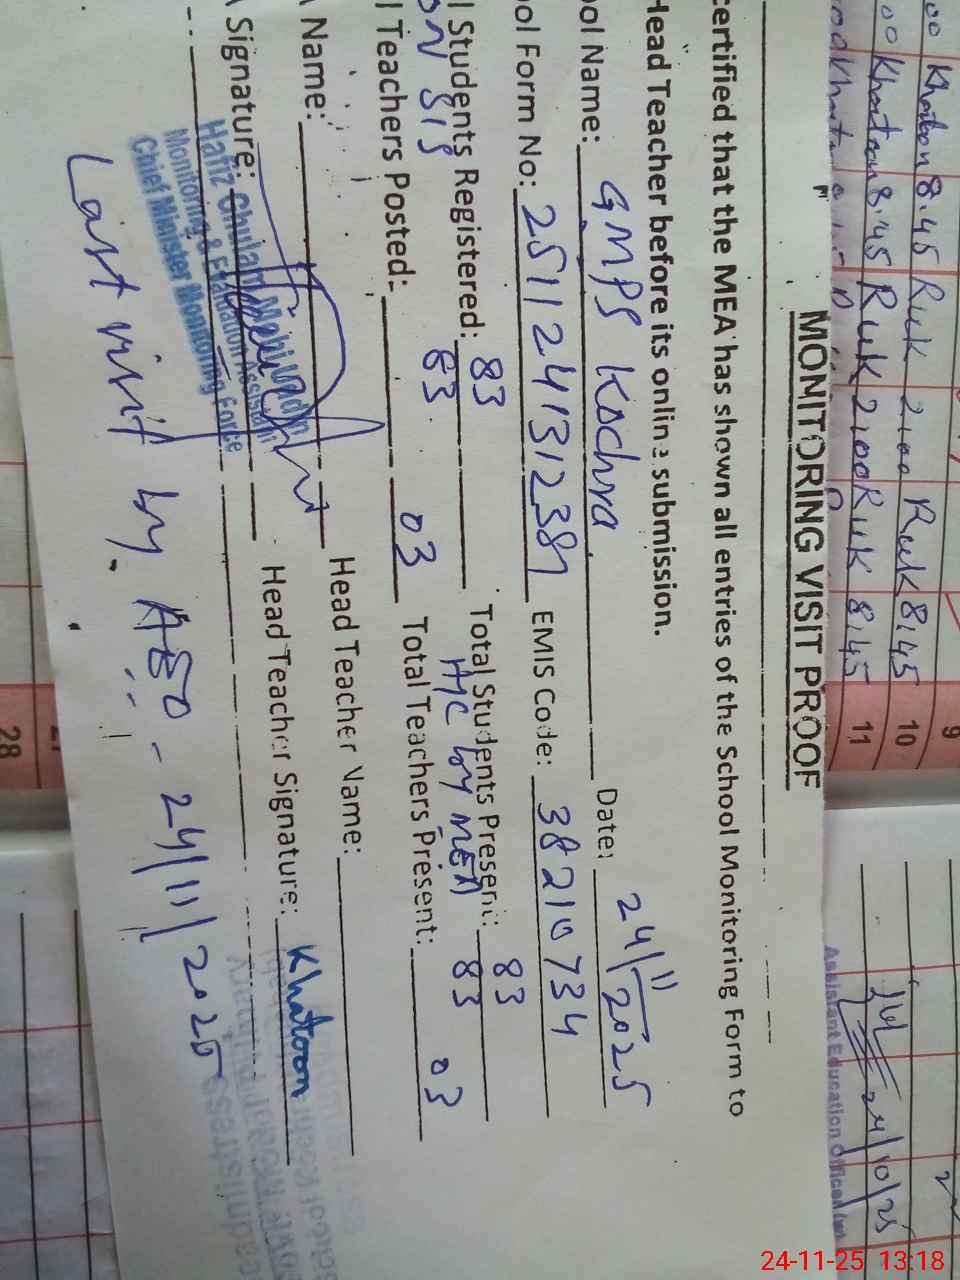 Khatoon 8.45 Ruk 2:00 Ruk 8:45
Khatoon 8.45 Ruk 2:00 Ruk 8:45
9
10
11
28
24/10/25
Assistant Education Officer
MONITORING VISIT PROOF
certified that the MEA has shown all entries of the School Monitoring Form to
Head Teacher before its online submission.
ool Name: GMPS Kochra Date: 24/11/2025
ool Form No: EMIS Code: 38210734
l Students Registered: 83 Total Students Present: 83
ON SIS 83 H/C by MEA 83
l Teachers Posted: 03 Total Teachers Present: 03
Name: Head Teacher Name:
Signature: Head Teacher Signature: Khatoon
Hafiz Ghulam Mohiuddin
Monitoring & Evaluation Assistant
Chief Minister Monitoring Force
Last visit by AEO - 24/11/2025
24-11-25 13:18